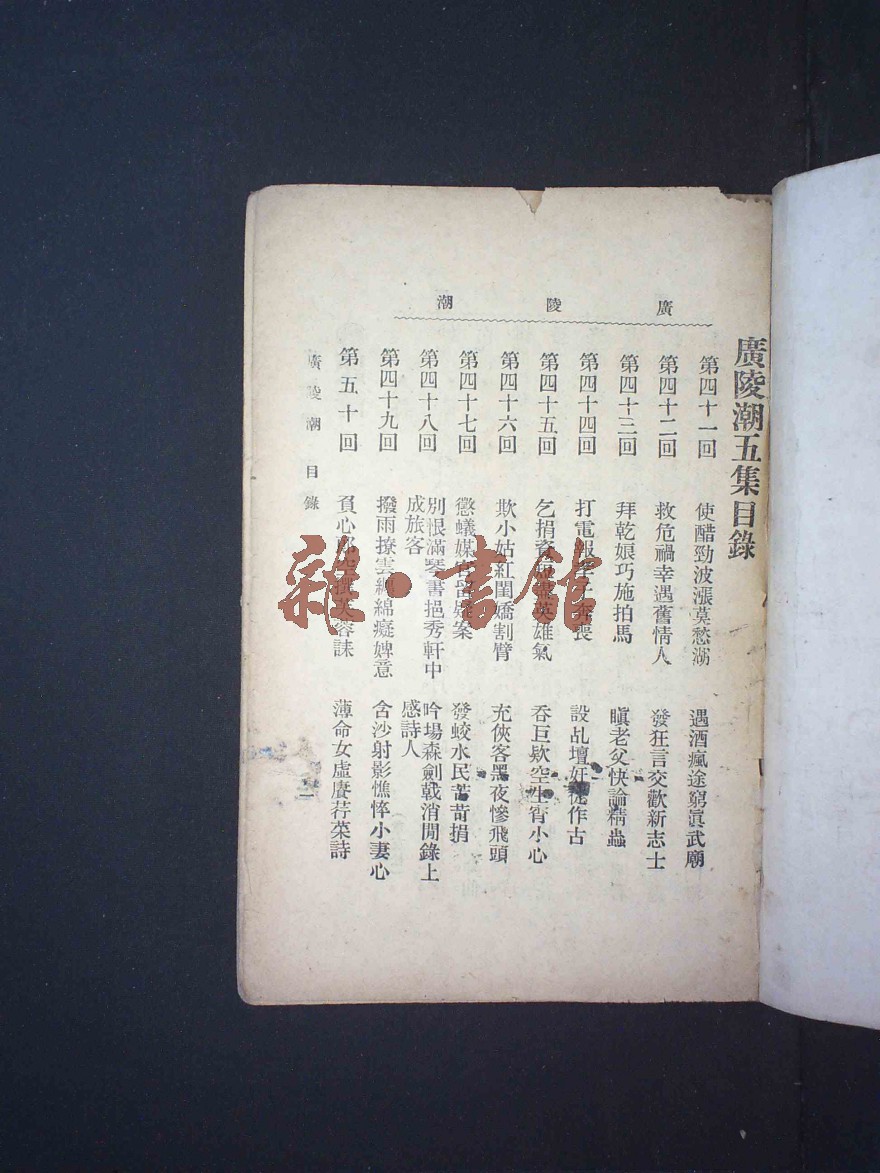 廣陵潮五集目錄
廣陵潮
第四十一回 使醋勁波漲莫愁湖 遇酒瘋途窮眞武廟
第四十二回 救危禍幸遇舊情人 發狂言交歡新志士
第四十三回 拜乾娘巧施拍馬 瞋老父快論精蟲
第四十四回 打電報孝子奔喪 設乩壇奸徒作古
第四十五回 乞捐資英雄氣 吞巨欵空生宵小心
第四十六回 欺小姑紅閨嬌割臂 充俠客黑夜慘飛頭
第四十七回 懲蟻媒留疑案 發蛟水民苦苛捐
第四十八回 別恨滿琴書挹秀軒中成旅客 吟場森劍戟消閒錄上感詩人
第四十九回 撥雨撩雲綿癡婢意 含沙射影憔悴小妻心
第五十回 負心郎撰芙蓉誄 薄命女虛賡荇菜詩
廣陵潮 目錄 一
雜·書館